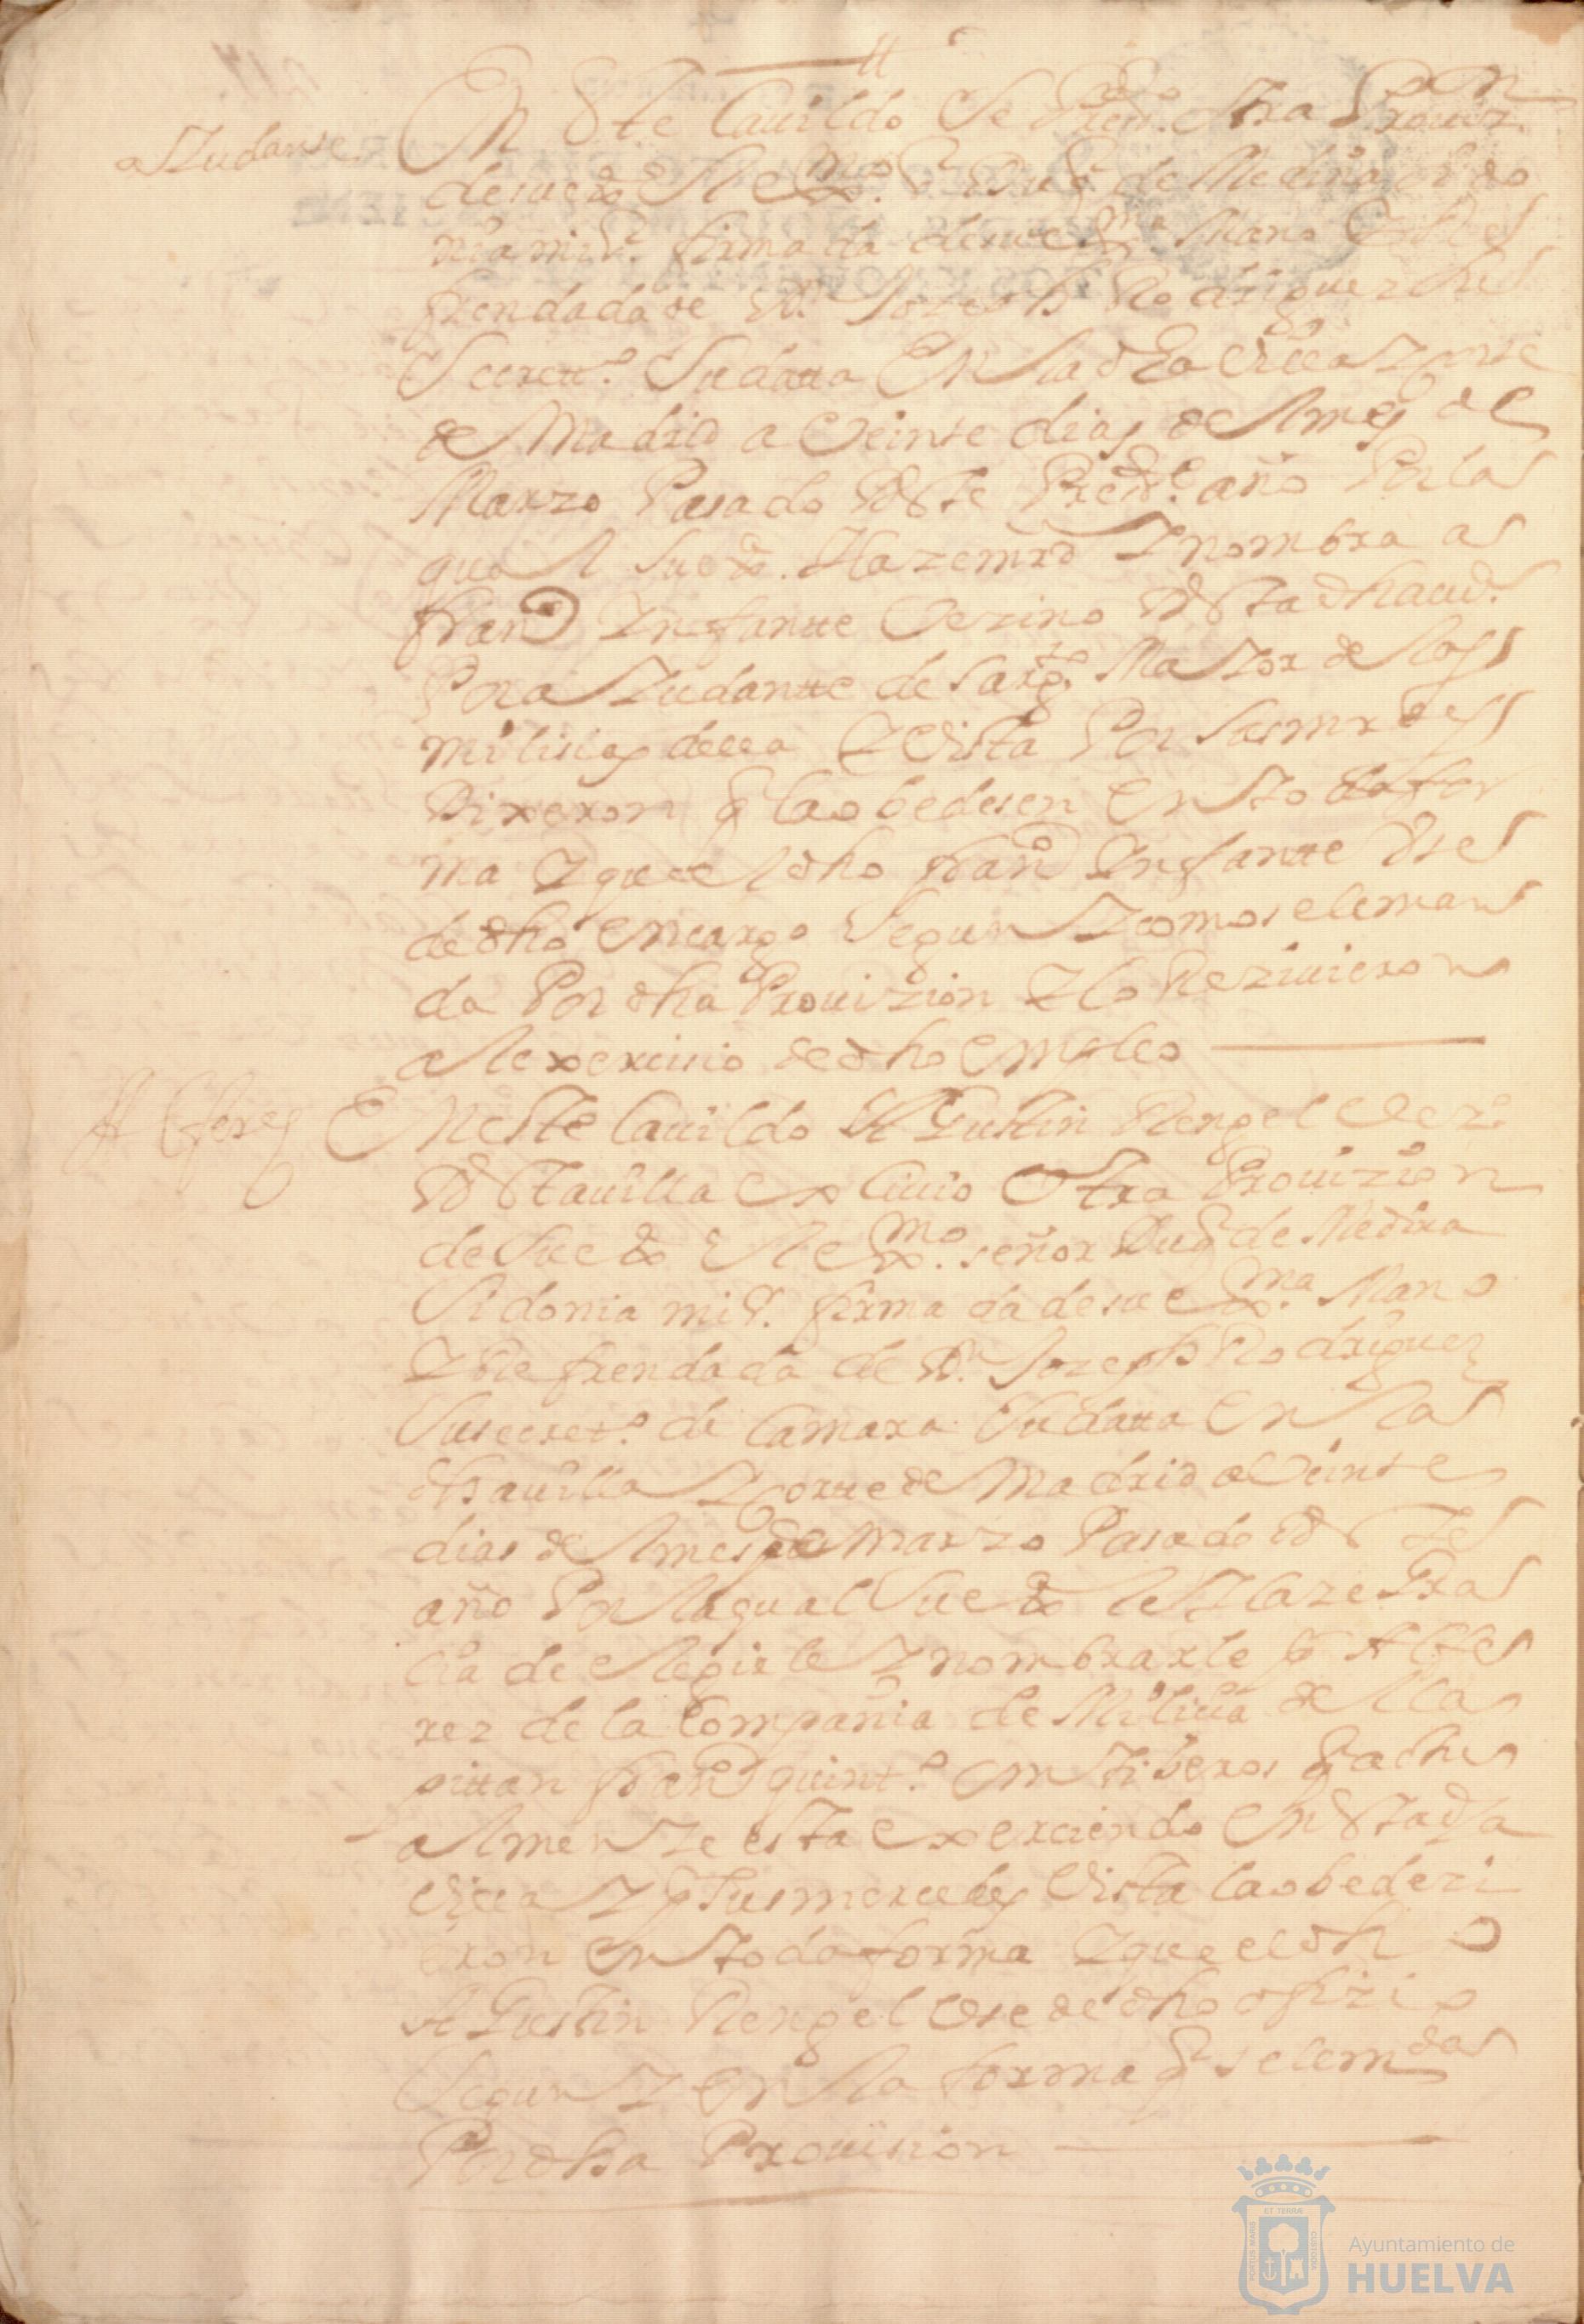 aYudante
En Este Cauildo Se Pres.do otra Prouiz.on
de su exª el Exmo. Sr. Duq de Medina Sido
nia mi Sr. firmada de su exma Mano Y Re
frendada de Dn. Joseph Rodriguez
Secrett.o Su data En la dha Villa Y Corte
de Madrid a Veinte dias del mes de
Marzo Pasado deste Press.te año Por la
qual su exª. Haze mrd Y nombra a
franco Ynfantte Vezino desta dha uª.
Por aYudantte de Sargto. MaYor de las
milisias della Y Vista Por sus mrdes
Dixeron q la obedesen En toda for
ma Y que el dho franco Ynfantte Vse
de dho encargo Segun Y como se le man
da Por dha Prouizion Y lo Reziuieron
al exersisio de dho empleo
Alferez
En este Cauildo AGustin Rengel Vezo.
desta uilla exsiuio Otra Prouizion
de Su exª el exmo. señor Duq de Medina
Sidonia mi Sr. firmada de su exma. Mano
Y Refrendada de Dn. Joseph Rodriguez
Su secret.o de Camara Su datta En la
dha uilla Y Corte de Madrid a Veinte
dias del mes de Marzo Pasado deste
año Por la qual Su exª le Haze Gra
cia de elegirle Y nombrarle p Alfe
rez de la Compañia de Milicia del Ca
pittan franco quint.o q actu
almente esta exerciendo En Esta dha
Villa Y q Sus mercedes Vista la obedezi
eron En toda forma Y que el dho
AGustin Rengel Vse de dho ofizio
Segun Y En la forma q se le mda
Por dha Prouision
Ayuntamiento de
HUELVA